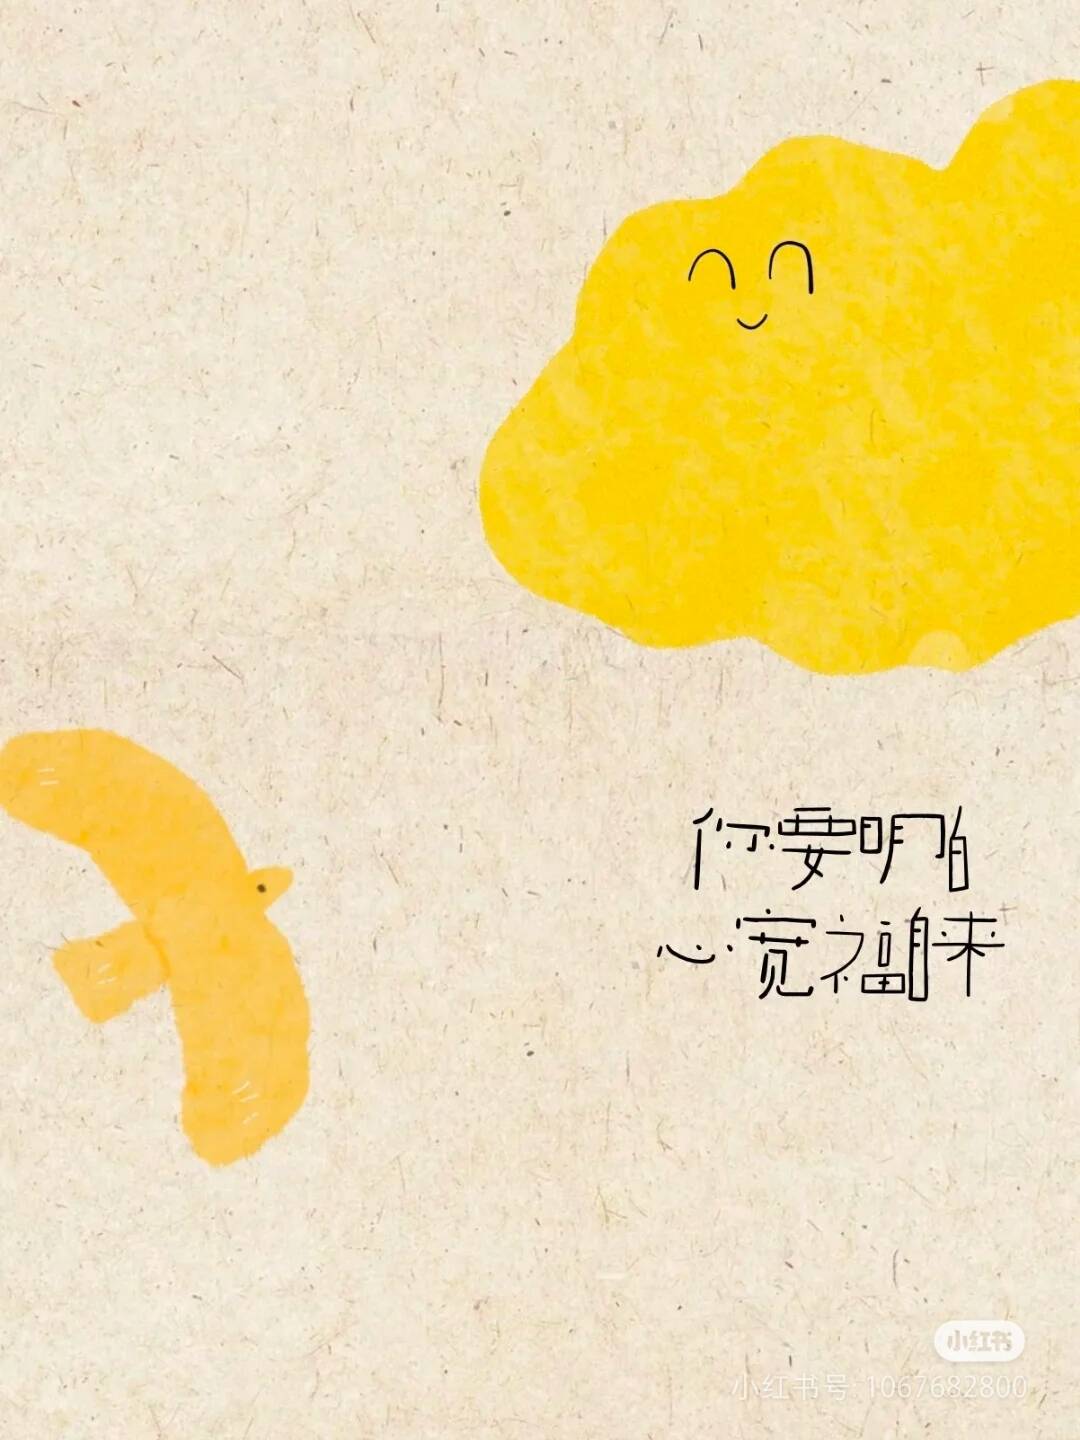 你要明白
心宽福自来
小红书
小红书号: 1067682800